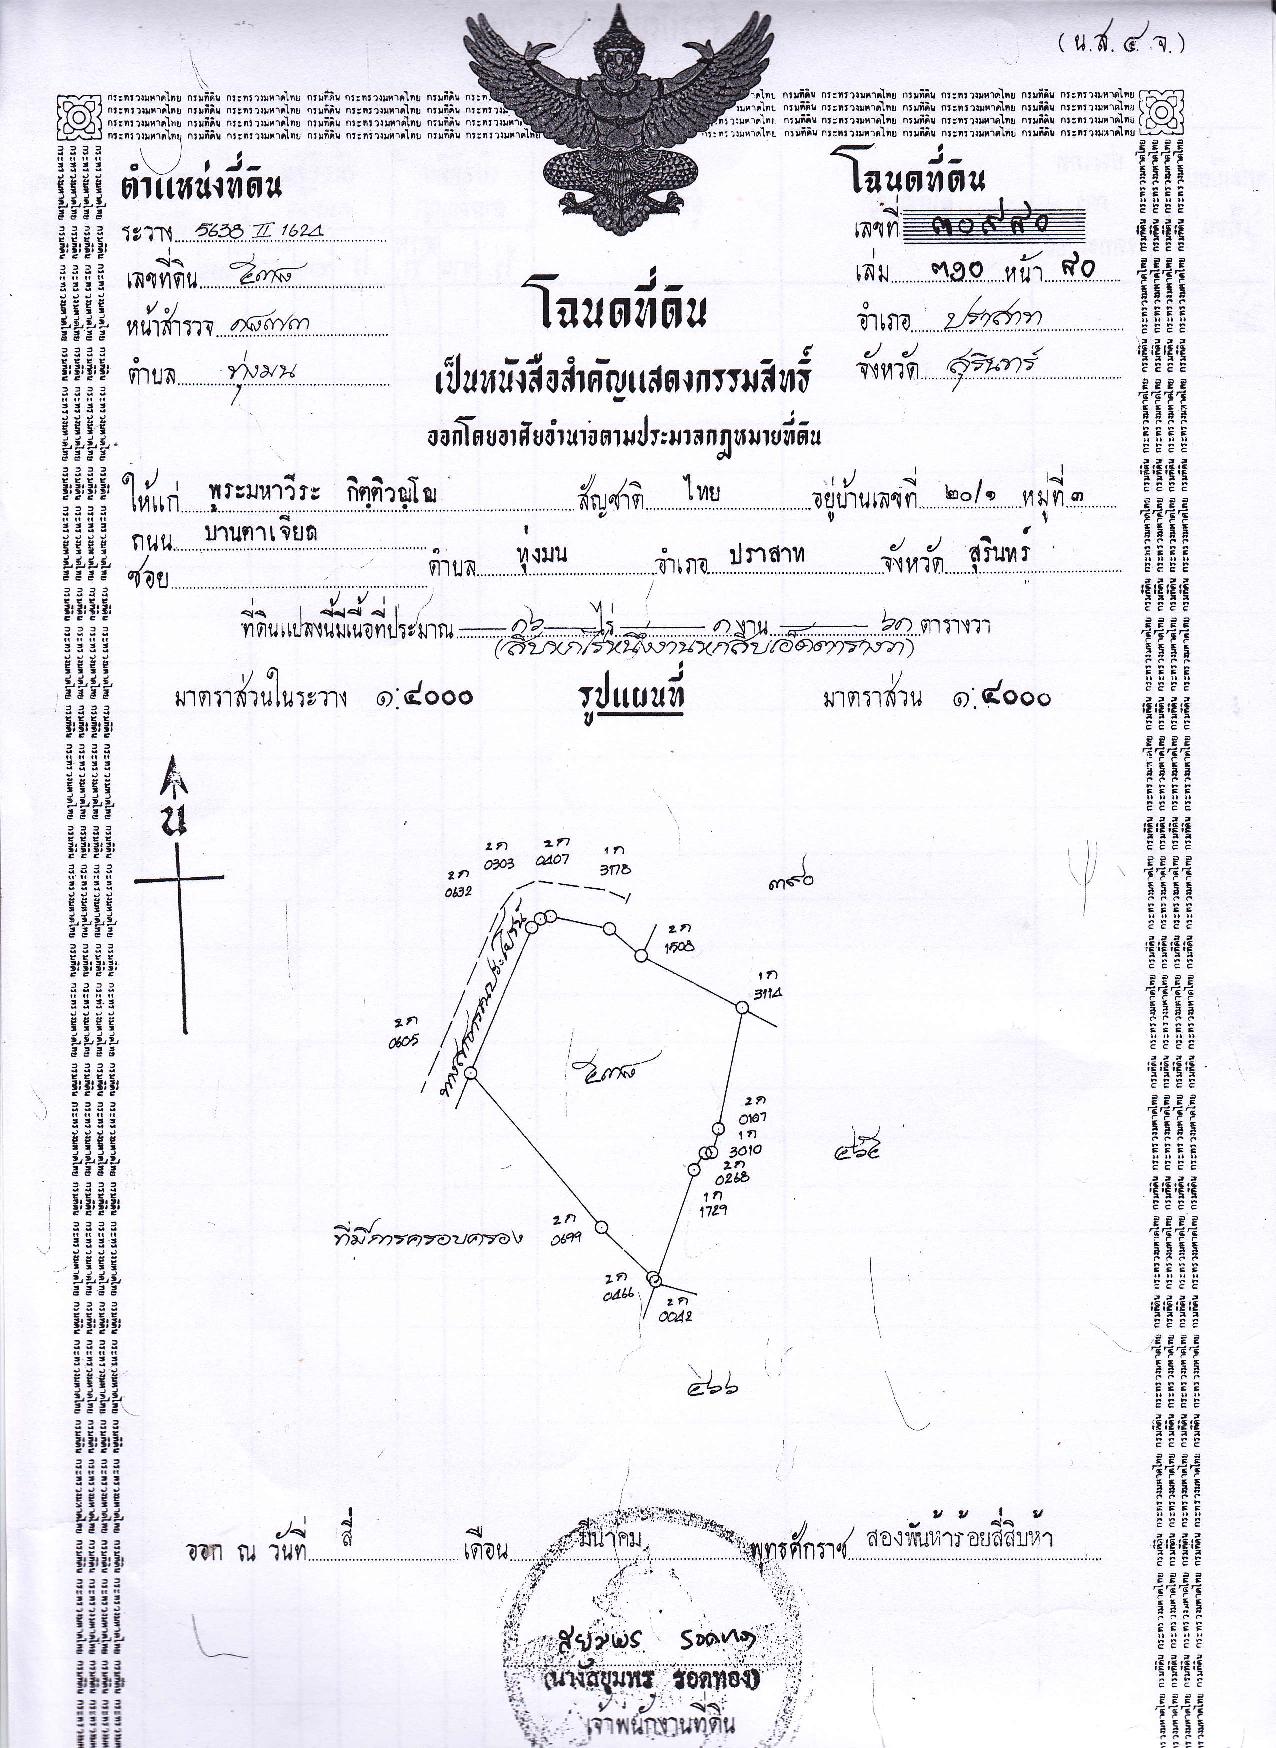 (น.ส.๔ จ.)
ตำแหน่งที่ดิน
ระวาง 5638 II 1624
เลขที่ดิน
หน้าสำรวจ
ตำบล ทุ่งมน
โฉนดที่ดิน
เลขที่ ๓๐๙๙๐
เล่ม ๓๑๐ หน้า ๙๐
อำเภอ ปราสาท
จังหวัด สุรินทร์
โฉนดที่ดิน
เป็นหนังสือสำคัญแสดงกรรมสิทธิ์
ออกโดยอาศัยอำนาจตามประมวลกฎหมายที่ดิน
ให้แก่ พระมหาวีระ กิตฺติวณฺโณ สัญชาติ ไทย อยู่บ้านเลขที่ ๒๐/๑ หมู่ที่ ๓
ถนน บ้านตาเจียด
ซอย ตำบล ทุ่งมน อำเภอ ปราสาท จังหวัด สุรินทร์
ที่ดินแปลงนี้มีเนื้อที่ประมาณ ๑๖ ไร่ ๑ งาน ๖๑ ตารางวา
(สิบหกไร่หนึ่งงานหกสิบเอ็ดตารางวา)
มาตราส่วนในระวาง ๑:๔๐๐๐ รูปแผนที่ มาตราส่วน ๑:๔๐๐๐
น
2ก 0632
2ก 0303
2ก 0407
1ก 3178
๓๙๐
2ก 1508
1ก 3114
ทางสาธารณประโยชน์
2ก 0605
2ก 0167
1ก 3010
2ก 0268
1ก 1729
ที่มีการครอบครอง
2ก 0699
2ก 0466
2ก 0042
๔๖๖
ออก ณ วันที่ สี่ เดือน มีนาคม พุทธศักราช สองพันห้าร้อยสี่สิบห้า
(นางสยุมพร รอดทอง)
เจ้าพนักงานที่ดิน